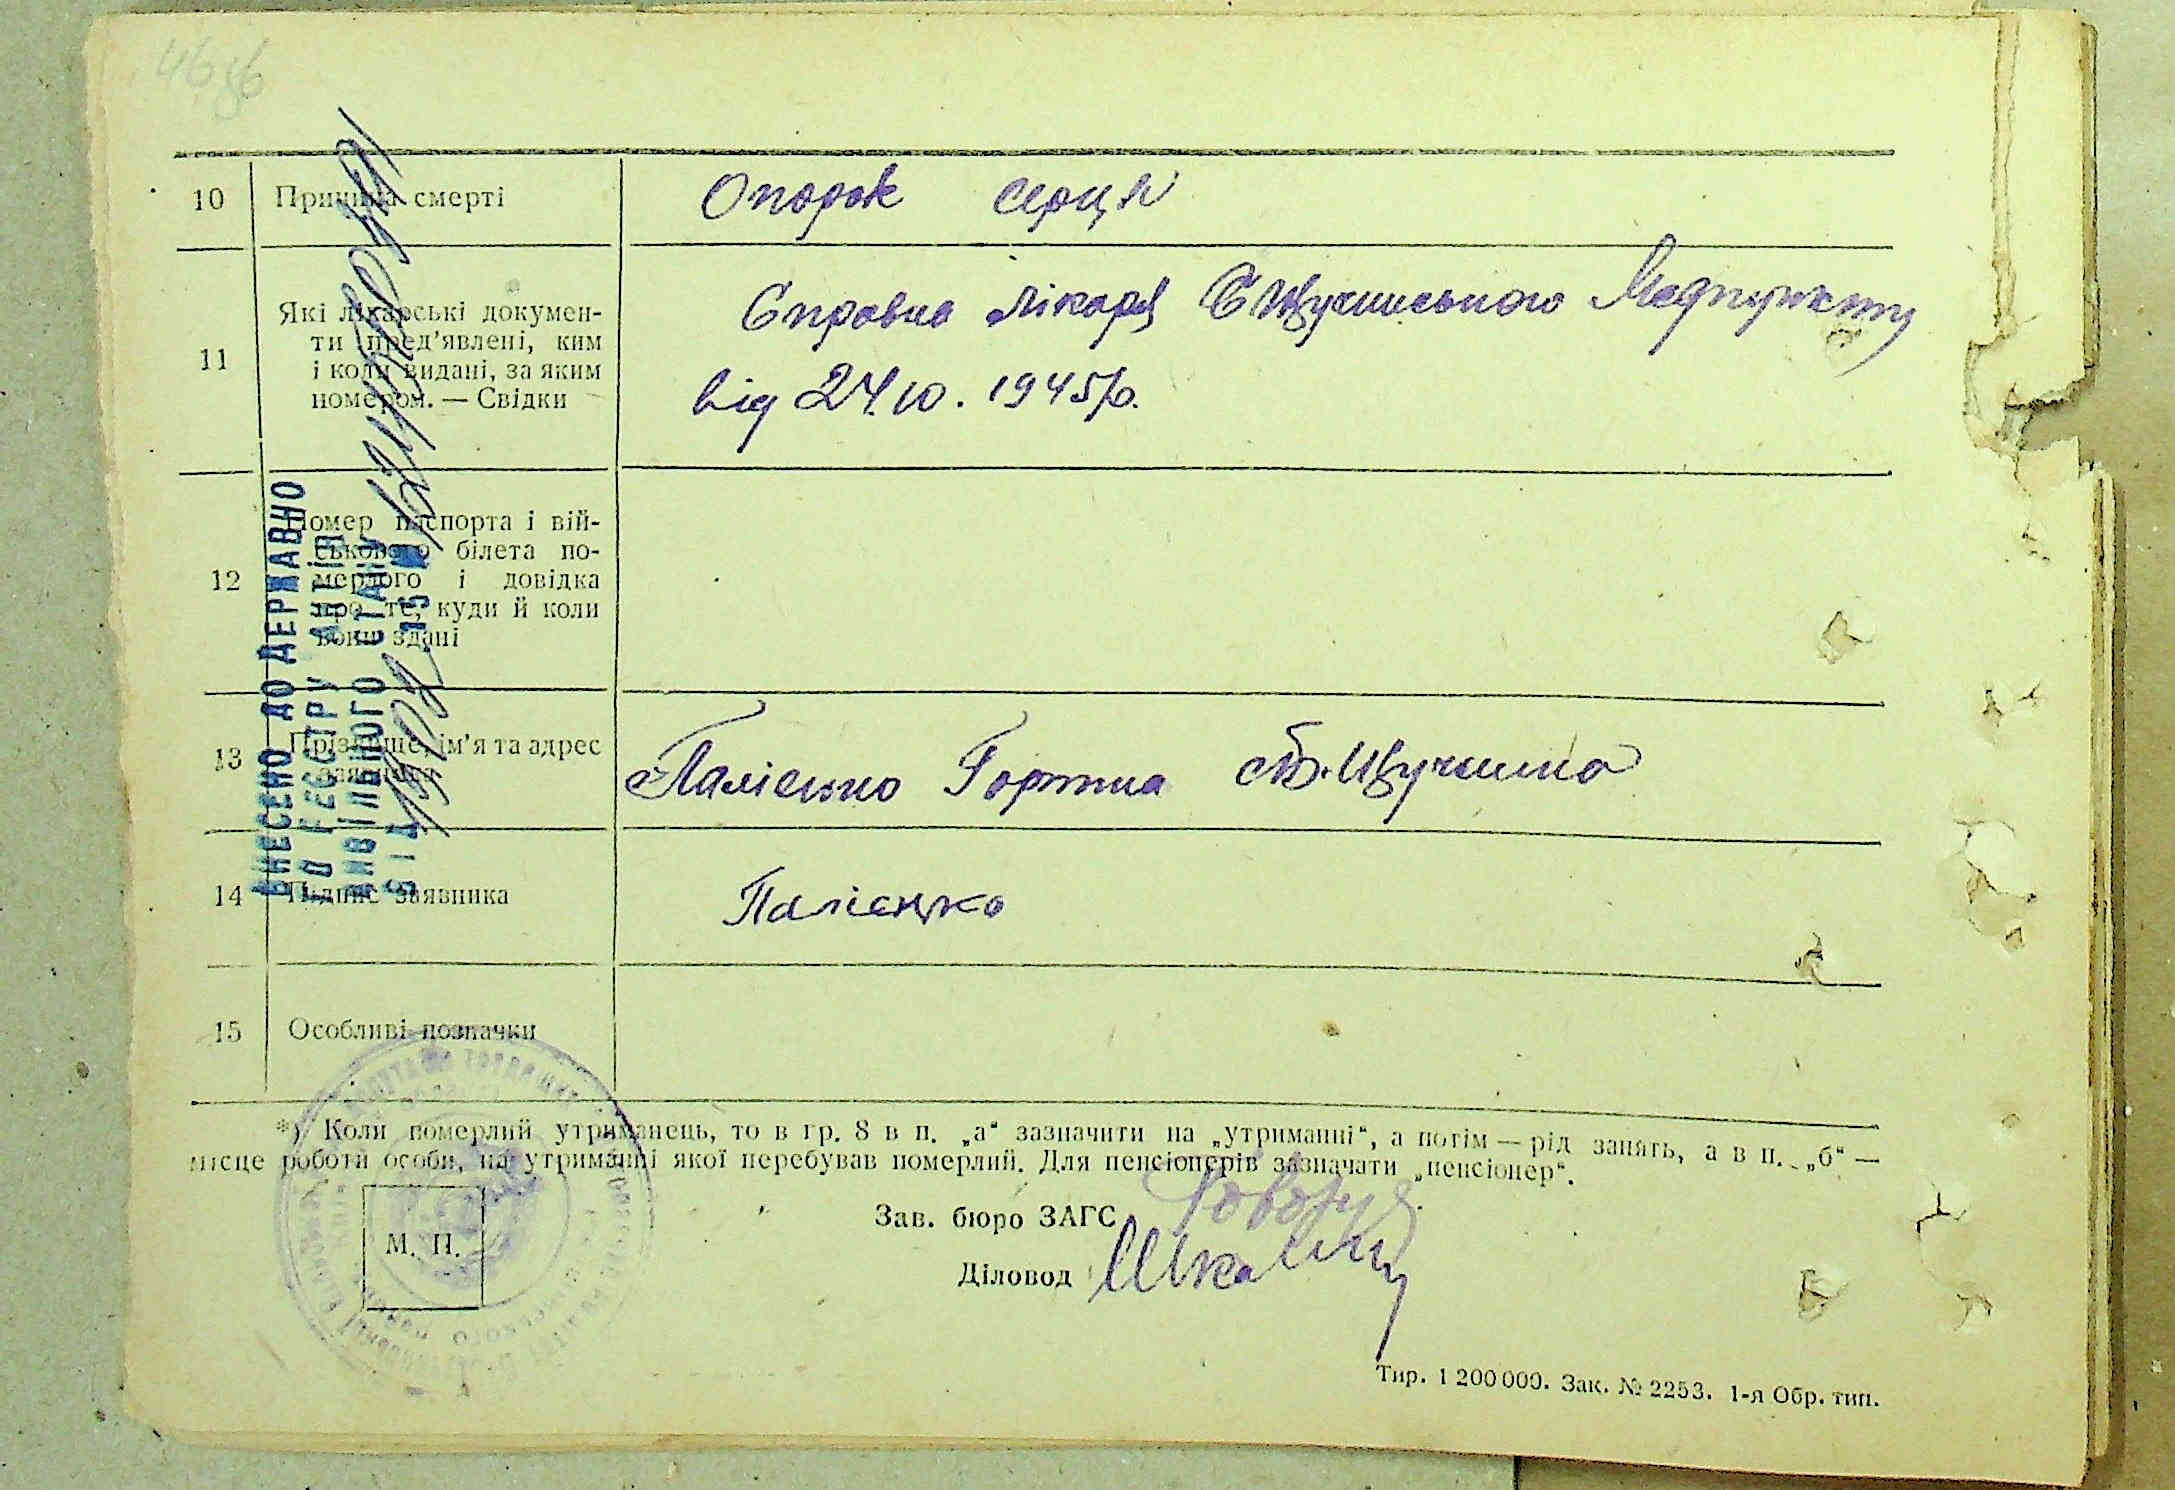 46 зв
10 Причина смерті Опорок серця
11 Які лікарські докумен-
ти пред'явлені, ким
і коли видані, за яким
номером. — Свідки
Справка лікаря Є Щучинського Медпункту
від 24.10. 1945 р.
12 Номер паспорта і вій-
ськового білета по-
мерлого і довідка
про те, куди й коли
вони здані
13 Прізвище, ім'я та адрес
заявника
Палієнко Гортина Щучинка
14 Підпис заявника Палієнко
15 Особливі позначки
ВНЕСЕНО ДО ДЕРЖАВНО
ГО РЕЄСТРУ АКТІВ
ЦИВІЛЬНОГО СТАНУ
ВІД
*) Коли померлий утриманець, то в гр. 8 в п. „а“ зазначити на „утриманні“, а потім — рід занять, а в п. „б“ —
місце роботи особи, на утриманні якої перебував померлий. Для пенсіонерів зазначати „пенсіонер“.
Зав. бюро ЗАГС
М. П.
Діловод
Тир. 1 200 000. Зак. № 2253. 1-я Обр. тип.